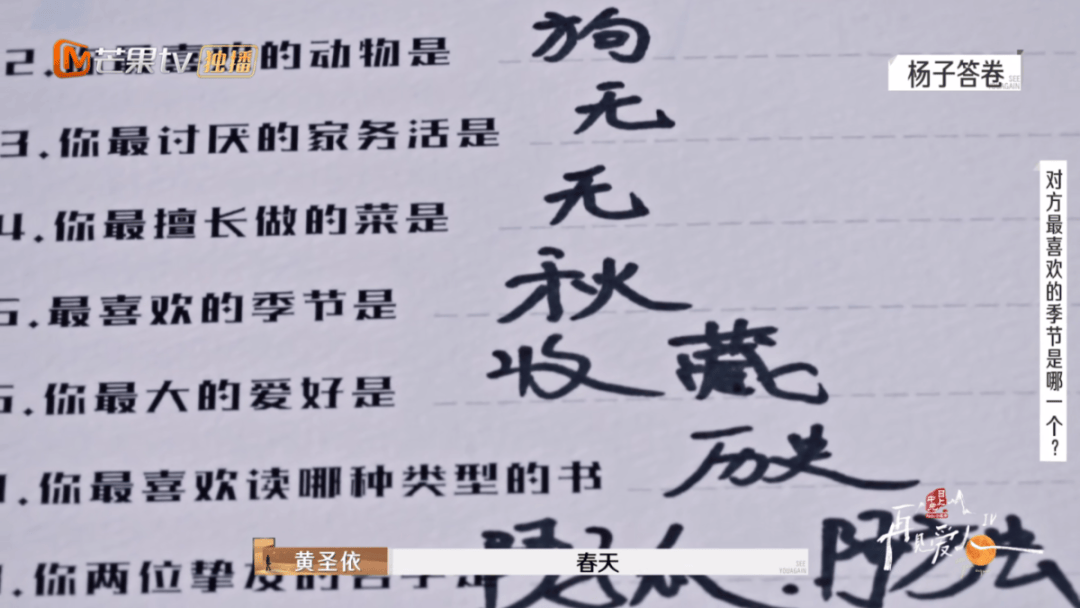 芒果tv 独播
杨子答卷
2. 的动物是 狗
3.你最讨厌的家务活是 无
4.你最擅长做的菜是 无
5.最喜欢的季节是 秋
6.你最大的爱好是 收藏
你最喜欢读哪种类型的书 历史
对方最喜欢的季节是哪一个？
再见爱人 IV
黄圣依 春天
SEE YOU AGAIN